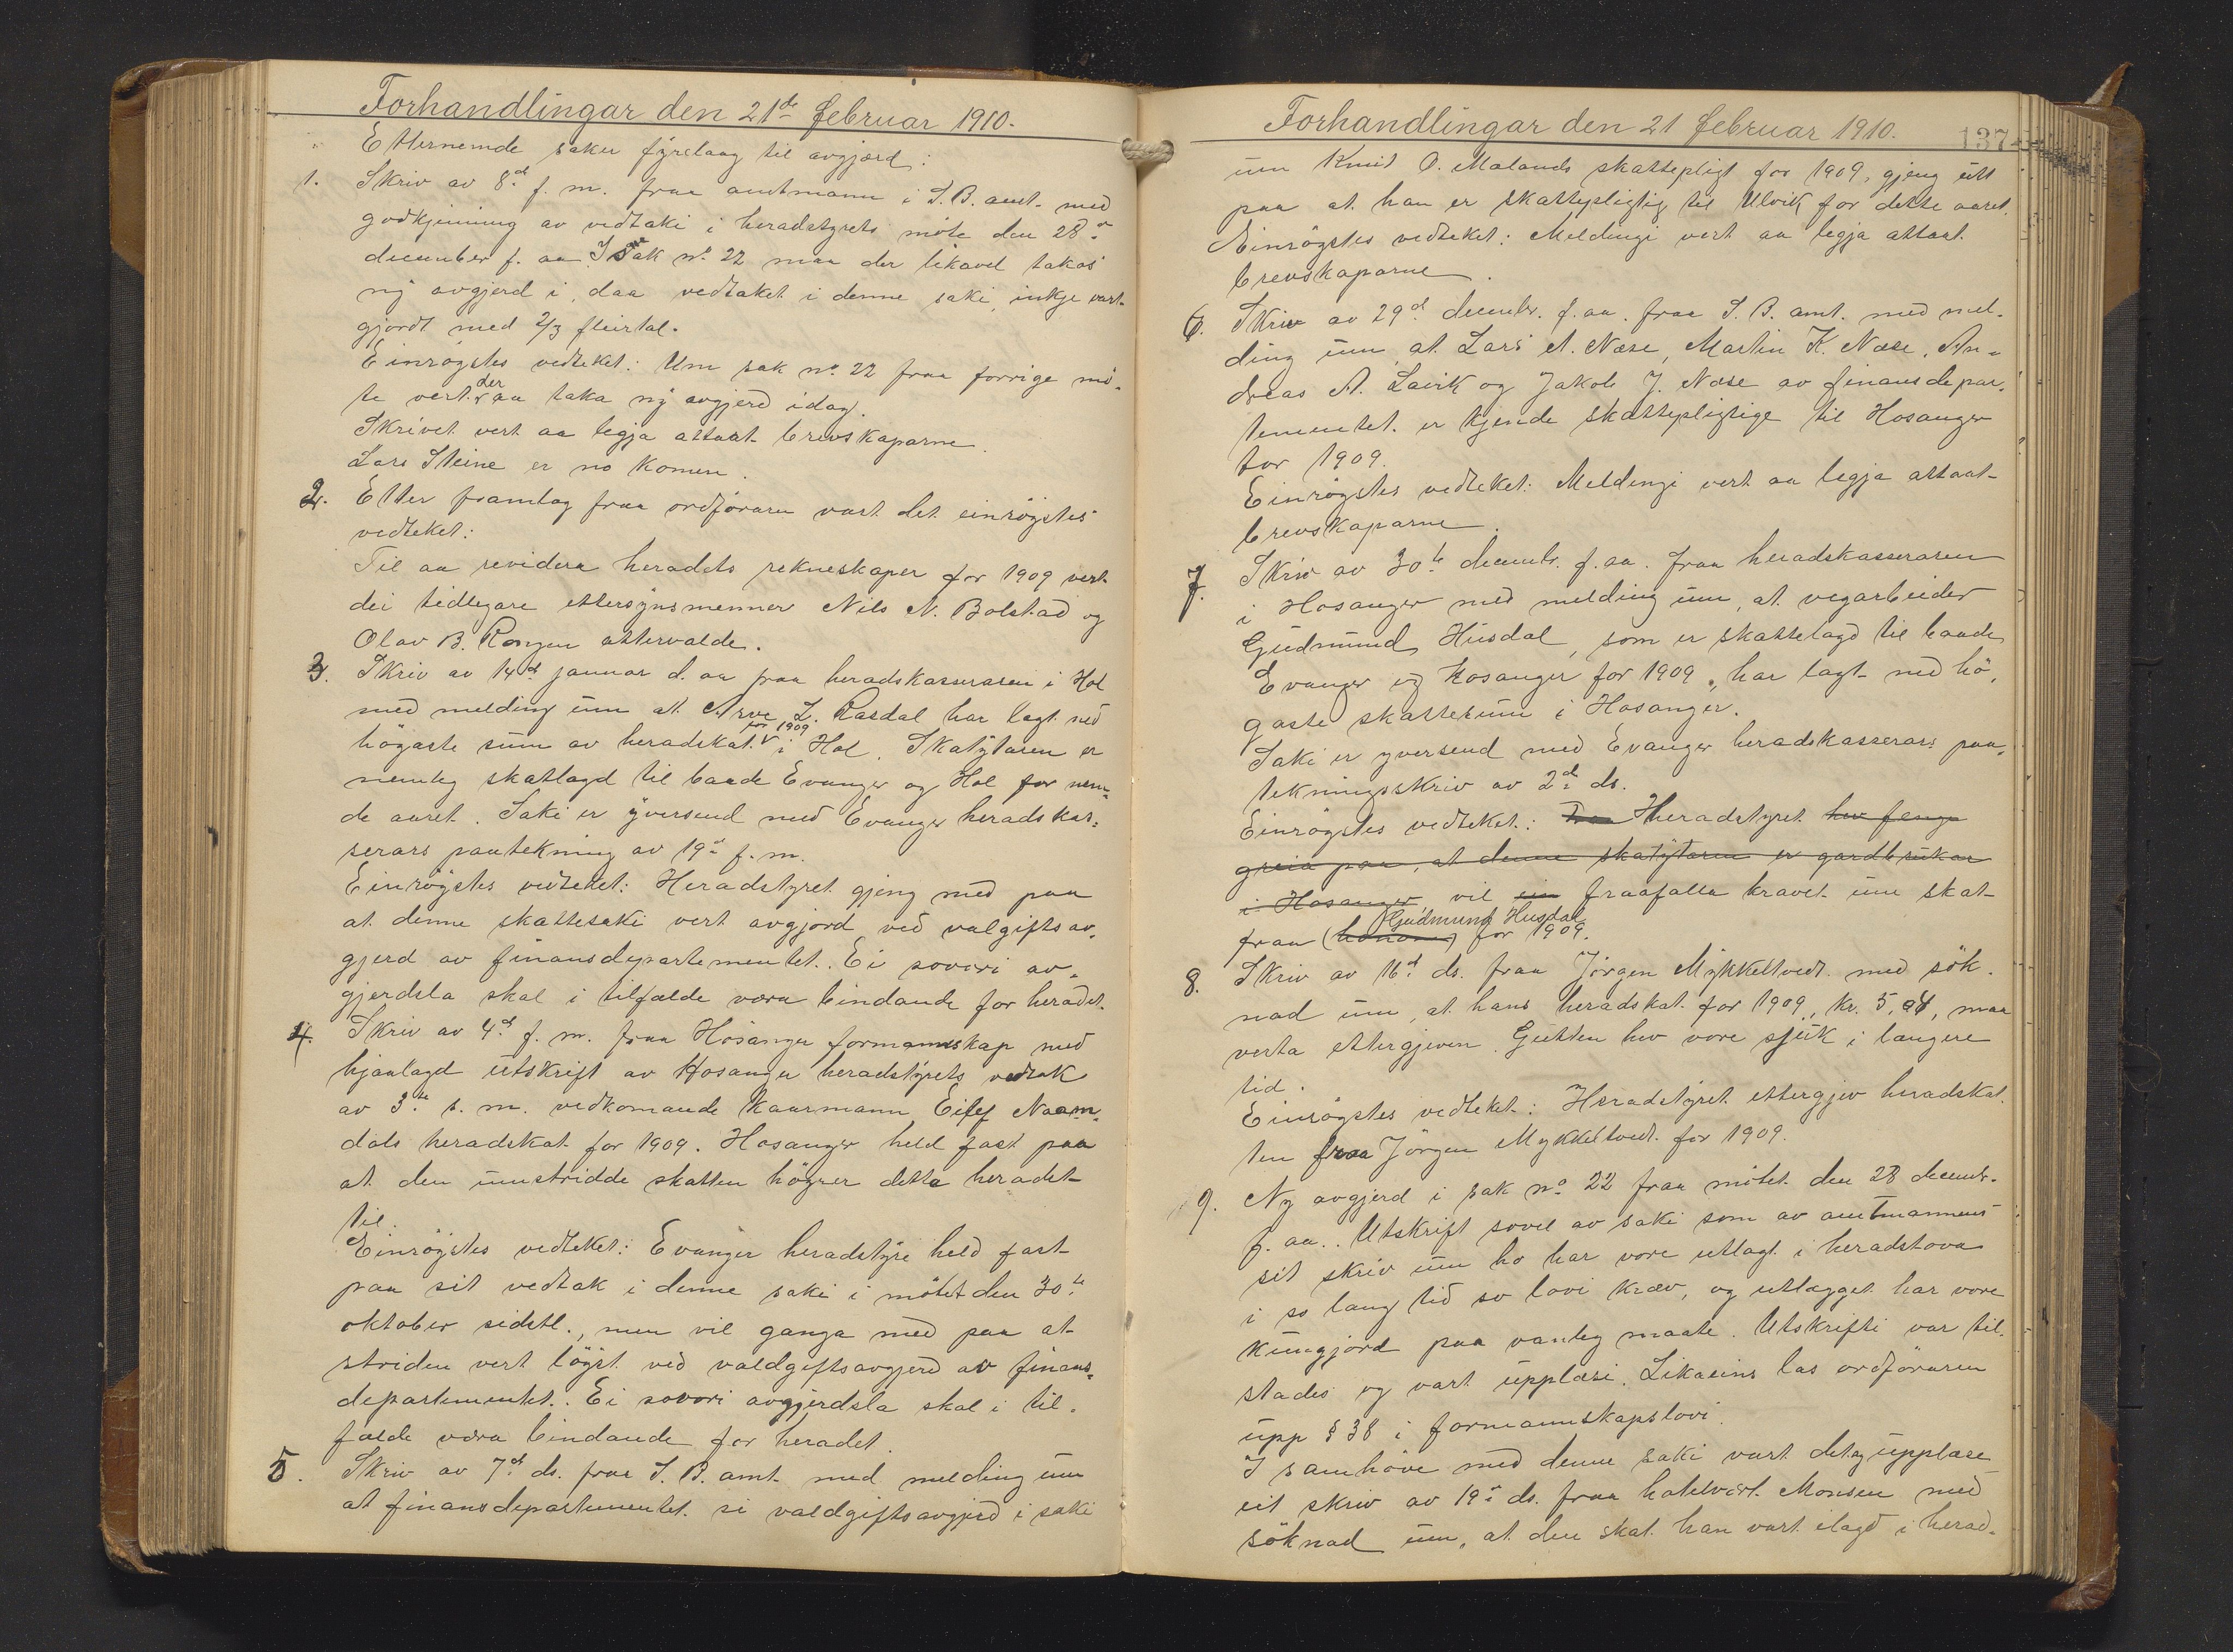 Forhandlingar den 21de februar 1910.
Etternemde saker fyrelaag til avgjærd:
1. Skriv av 8d f. m. fraa amtmann i S. B. amt. med
godkjenning av vedtaki i heradstyrets möte den 28de
december f. aa. I sak no 22 maa der likavel takas
ny avgjerd i, daa vedtaket i denne saki inkje vart
gjordt med 2/3 fleirtal.
Einrögstes vedteket: Um sak no 22 fraa forrige mö-
te vert der aa taka ny avgjerd idag.
Skrivet vert aa legja attaat brevskaparne.
Lars Steine er no komen.
2. Etter framlag fraa ordföraren vart det einrögstes
vedteket:
Til aa revidera heradets rekneskaper for 1909 vert
dei tidlegare ettersynsmenner Nils N. Bolstad og
Olav B. Rongen attervalde.
3. Skriv av 14d januar d. aa fraa heradskasseraren i Hol
med melding um at Arve L. Rasdal har lagt ned
högaste sum av heradskat for 1909 i Hol. Skatytaren er
nemleg skatlagd til baade Evanger og Hol for nem-
de aaret. Saki er yversend med Evanger heradskas-
serars paatekning av 19de f. m.
Einrögstes vedteket: Heradstyret gjeng med paa
at denne skattesaki vert avgjord ved valgiftsav-
gjerd av finansdepartementet. Ei sovori av-
gjerdsla skal i tilfælde væra bindande for heradet.
4. Skriv av 4d f. m. fraa Hosanger formannskap med
hjaalagd utskrift av Hosanger heradstyrets vedtak
av 3de s. m. vedkomande kaarmann Eilef Naam-
dals heradskat for 1909. Hosanger held fast paa
at den umstridde skatten högrer dette heradet
til.
Einrögstes vedteket: Evanger heradstyre held fast
paa sit vedtak i denne saki i mötet den 30te
oktober sidstl., men vil ganga med paa at
striden vert löyst ved valdgiftsavgjerd av finans-
departementet. Ei sovori avgjerdsla skal i til-
fælde væra bindande for heradet.
5. Skriv av 7d ds. fraa S. B. amt med melding um
at finansdepartementet si valdgiftsavgjerd i saki
Forhandlingar den 21 februar 1910.
137
um Knut O. Mælands skattepligt for 1909, gjeng utt
paa at han er skattepligtig til Ulvik for dette aaret.
Einrögstes vedteket: Meldingi vert aa legja attaat
brevskaparne.
6. Skriv av 29d decembr. f. aa. fraa S. B. amt. med mel-
ding um at Lars A. Næse, Martin K. Næse, An-
dreas A. Lavik og Jakob J. Næse av finansdepar-
tementet er kjende skattepligtige til Hosanger
for 1909.
Einrögstes vedteket: Meldingi vert aa legja attaat
brevskaparne.
7. Skriv av 30te decembr. f. aa. fraa heradskasseraren
i Hosanger med melding um, at vegarbeider
Gudmund Husdal, som er skattelagd til baade
Evanger og Hosanger for 1909, har lagt ned hö-
gaste skattesum i Hosanger.
Saki er yversend med Evanger heradskasserars paa-
tekningsskriv av 2de ds.
Einrögstes vedteket: Heradstyret hev fenge
greia paa, at denne skatytaren er gardbrukar
i Hosanger vil fraafalla kravet um skat
fraa (honom) Gudmund Husdal for 1909.
8. Skriv av 16d ds. fraa Jörgen Mykkeltvedt med sök-
nad um, at hans heradskat for 1909, kr. 5,04, maa
verta ettergjeven. Gutten hev vore sjuk i længere
tid.
Einrögstes vedteket: Heradstyret ettergjev heradskat-
ten fraa Jörgen Mykkeltvedt for 1909.
9. Ny avgjerd i sak no 22 fraa mötet den 28 decembr.
f. aa. Utskrift sovel av saki som av amtmannens
sit skriv um ho har vore utlagt i heradstova
i so lang tid so lovi kræv, og utlegget har vore
kungjord paa vanleg maate. Utskrifti var til-
stades og vart upplæsi. Likaeins las ordföraren
upp § 38 i formannskapslovi.
I samhöve med denne saki vart det og upplæse
eit skriv av 19de ds. fraa hotelvært Monsen med
söknad um, at den skat han vart ilagd i herad-